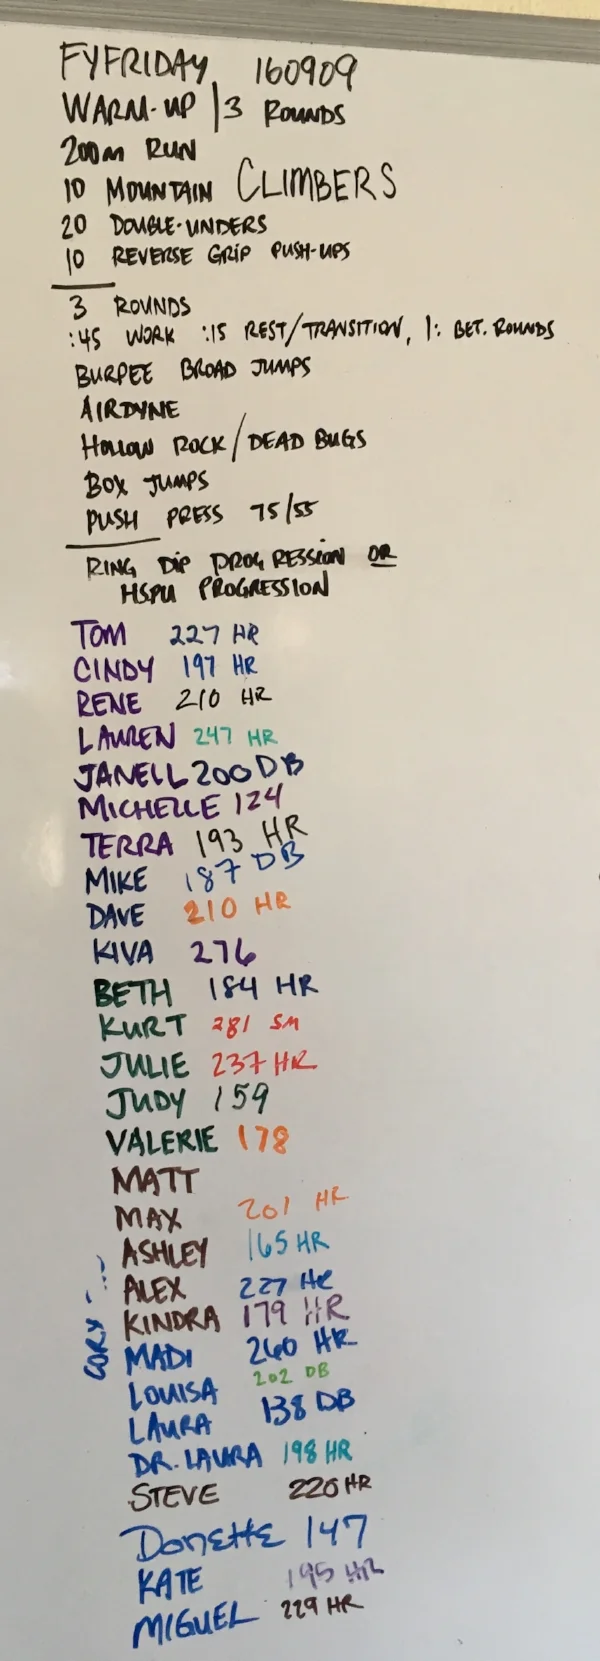 FYFRIDAY 160909
WARM-UP | 3 ROUNDS
200m RUN
10 MOUNTAIN CLIMBERS
20 DOUBLE-UNDERS
10 REVERSE GRIP PUSH-UPS
3 ROUNDS
:45 WORK :15 REST/TRANSITION, 1: BET. ROUNDS
BURPEE BROAD JUMPS
AIRDYNE
HOLLOW ROCK/DEAD BUGS
BOX JUMPS
PUSH PRESS 75/55
RING DIP PROGRESSION OR
HSPU PROGRESSION
TOM 227 HR
CINDY 197 HR
RENE 210 HR
LAUREN 247 HR
JANELL 200 DB
MICHELLE 124
TERRA 193 HR
MIKE 187 DB
DAVE 210 HR
KIVA 276
BETH 184 HR
KURT 281 SM
JULIE 237 HR
JUDY 159
VALERIE 178
MATT
MAX 201 HR
ASHLEY 165 HR
ALEX 227 HR
KINDRA 179 HR
CORY
MADI 260 HR
LOUISA 202 DB
LAURA 138 DB
DR. LAURA 198 HR
STEVE 220 HR
DONETTE 147
KATE 195 HR
MIGUEL 229 HR